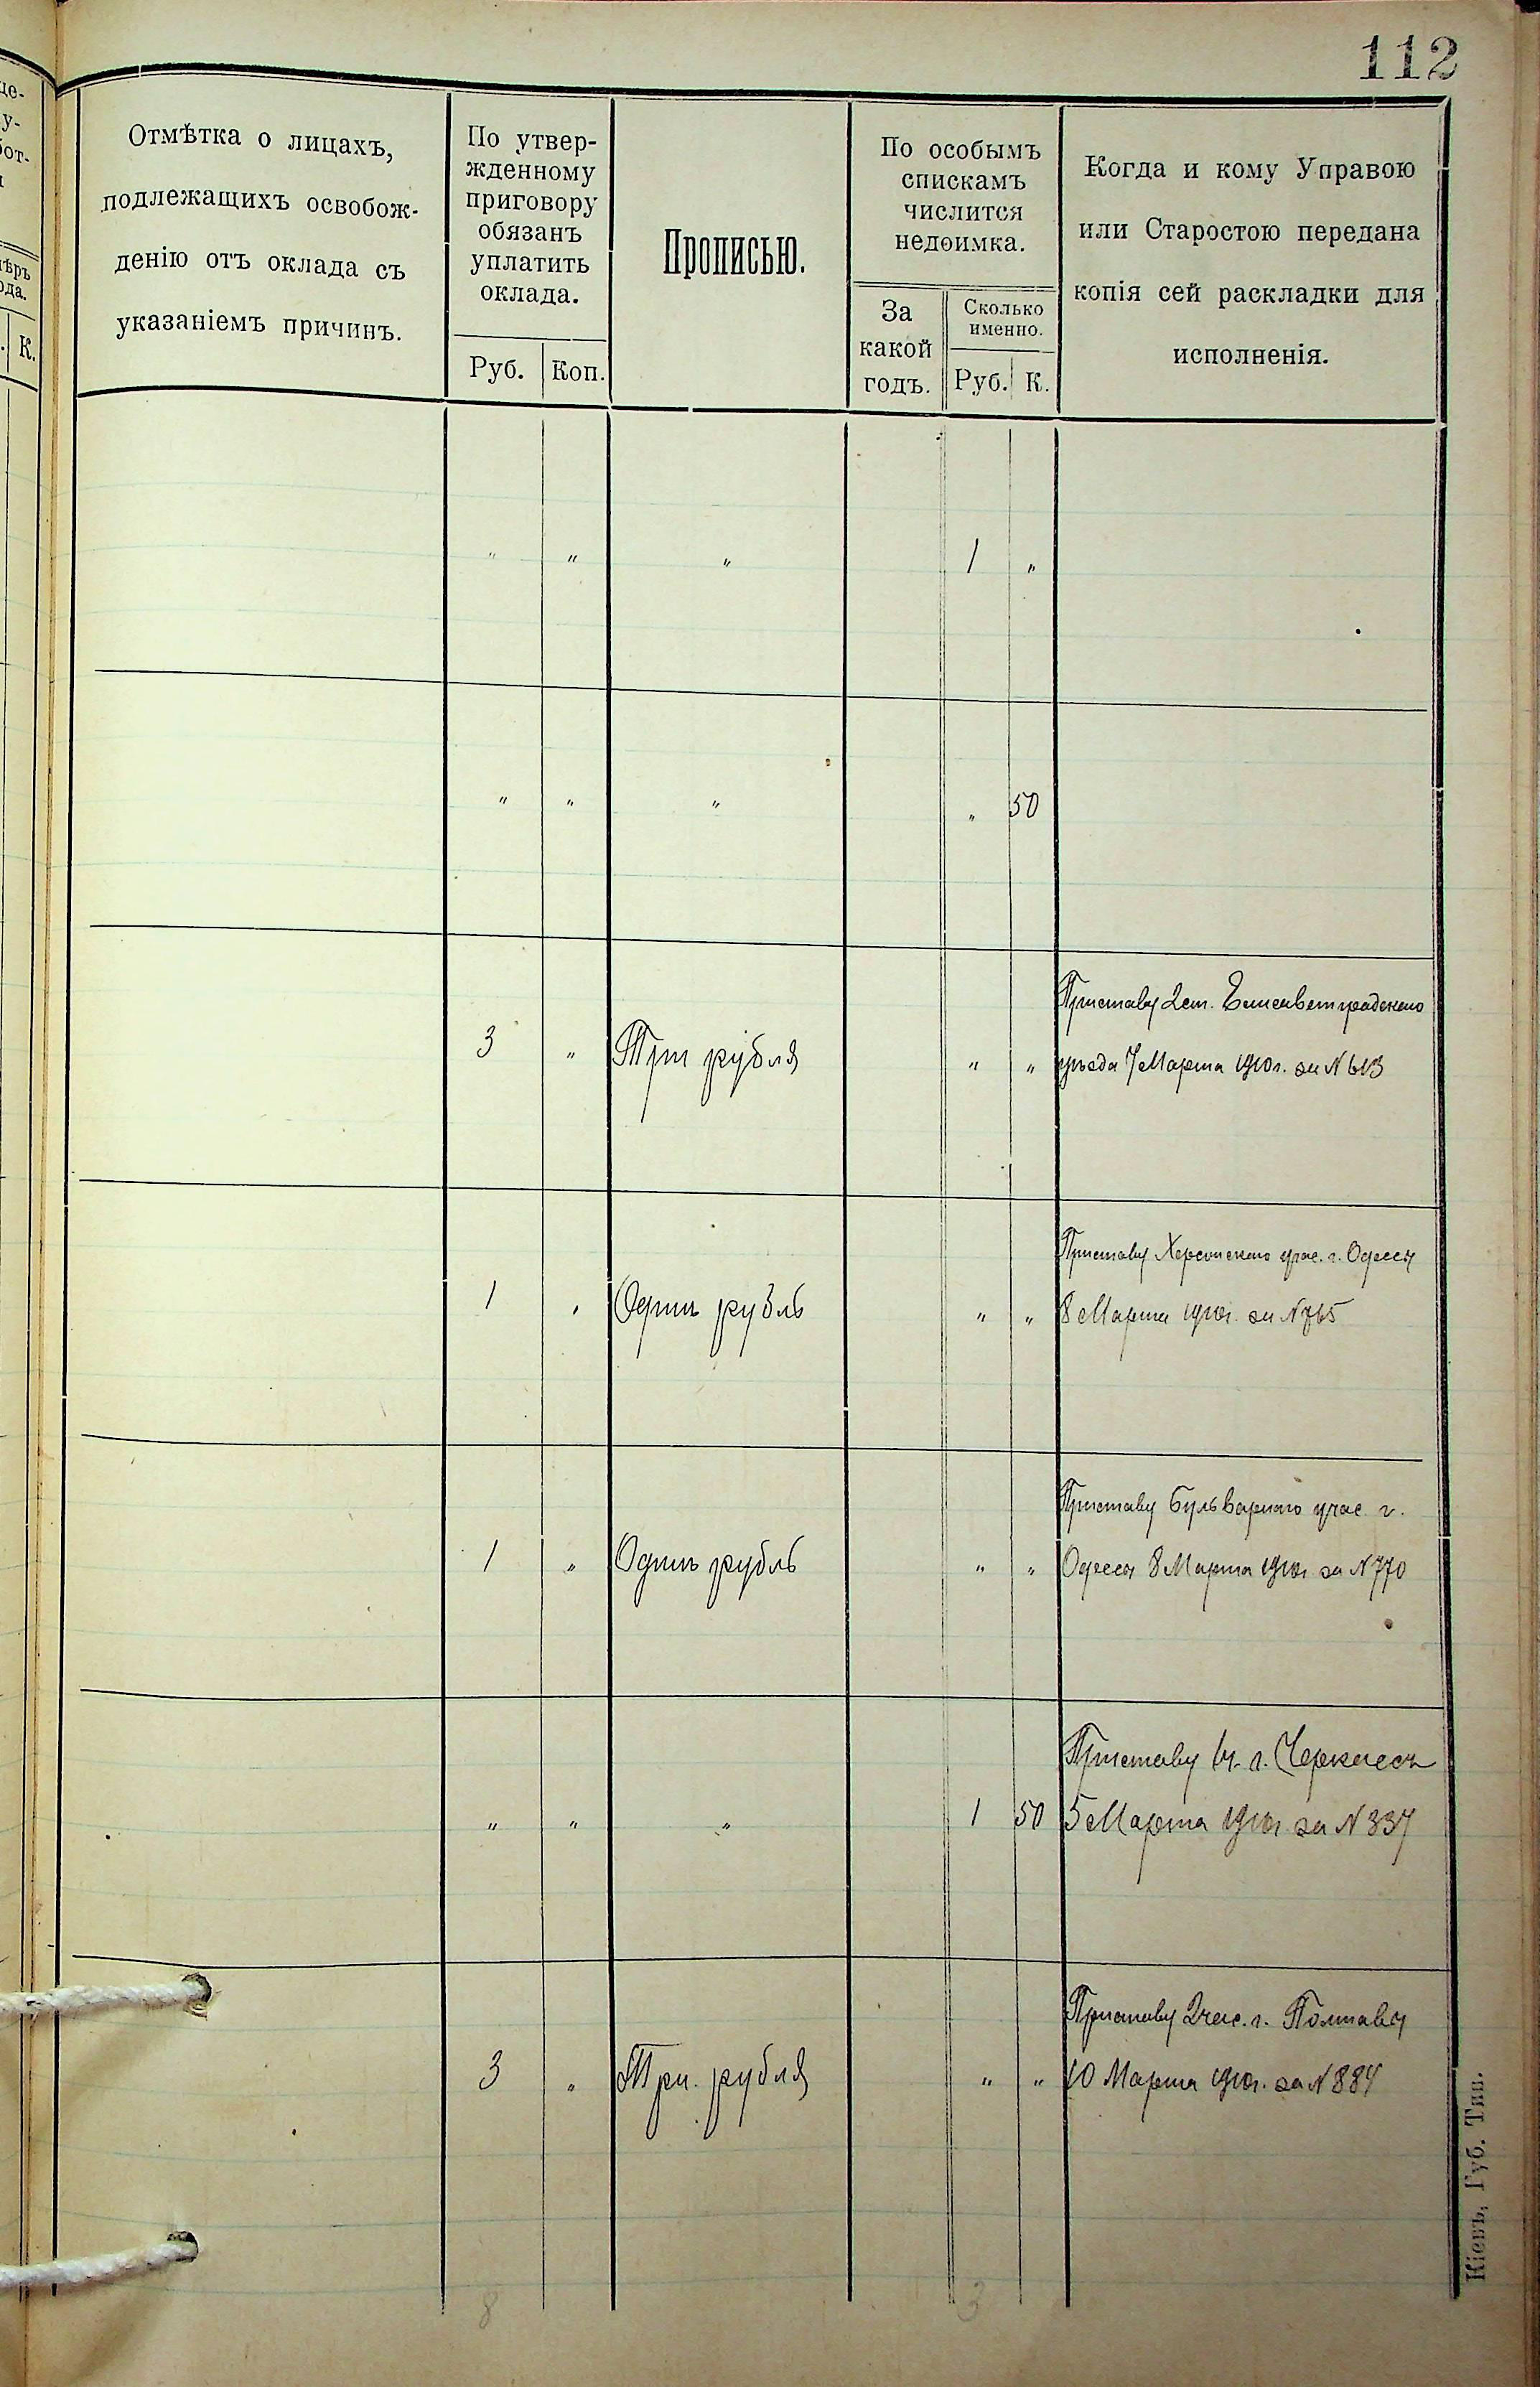 112
Отмѣтка о лицахъ,
подлежащихъ освобож-
денію отъ оклада съ
указаніемъ причинъ.
По утвер-
жденному
приговору
обязанъ
уплатить
оклада.
Руб. Коп.
Прописью.
По особымъ
спискамъ
числится
недоимка.
За
какой
годъ.
Сколько
именно.
Руб. К.
Когда и кому Управою
или Старостою передана
копія сей раскладки для
исполненія.
К.
" " " 1 "
" " " " 50
Приставу 2 ст. Елисаветградскаго
3 " Три рубля " " уѣзда 7 Марта 1910 г. за N 613
Приставу Херсонскаго учас. г. Одессы
1 " Одинъ рубль " " 8 Марта 1910 г. за N 765
Приставу Бульварнаго учас. г.
1 " Одинъ рубль " " Одессы 8 Марта 1910 г. за N 770
Приставу 1 ч. г. Черкассъ
" " " 1 50 5 Марта 1910 г. за N 337
Приставу 2 час. г. Полтавы
3 " Три рубля " " 10 Марта 1910 г. за N 884
8 3
Кіевъ, Губ. Тип.